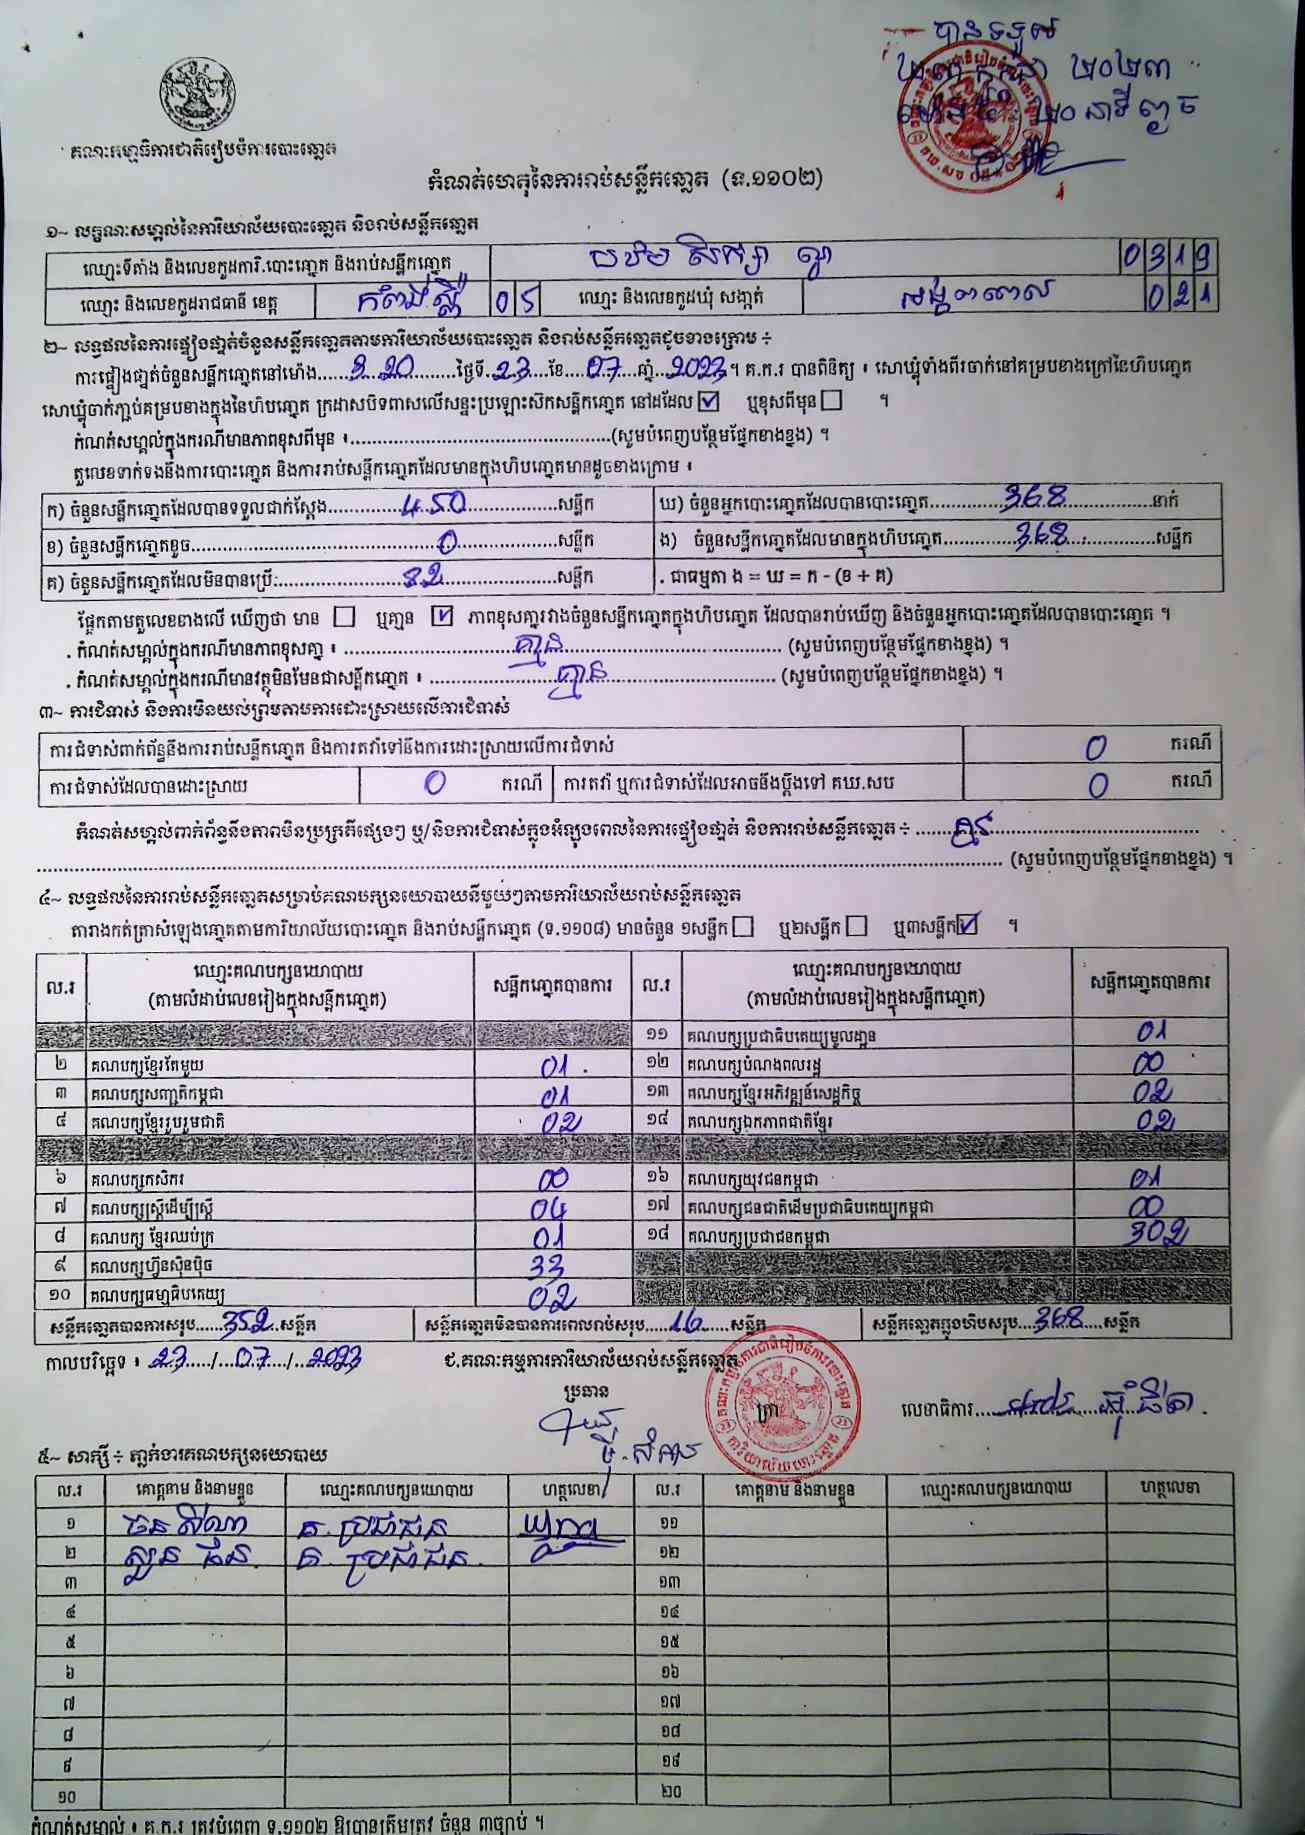 បានទទួល
២០២៣
២០ នាទី ព្ងច
គណៈកម្មាធិការជាតិរៀបចំការបោះឆ្នោត
កំណត់ហេតុនៃការរាប់សន្លឹកឆ្នោត (ទ.១១០២)
១~ លក្ខណៈសម្គាល់នៃការិយាល័យបោះឆ្នោត និងរាប់សន្លឹកឆ្នោត
ឈ្មោះទីតាំង និងលេខកូដការិ.បោះឆ្នោត និងរាប់សន្លឹកឆ្នោត បឋម សិក្សា 0319
ឈ្មោះ និងលេខកូដរាជធានី ខេត្ត កំពង់ស្ពឺ 05 ឈ្មោះ និងលេខកូដឃុំ សង្កាត់ 021
២~ លទ្ធផលនៃការផ្ទៀងផ្ទាត់ចំនួនសន្លឹកឆ្នោតតាមការិយាល័យបោះឆ្នោត និងរាប់សន្លឹកឆ្នោតដូចខាងក្រោម ÷
ការផ្ទៀងផ្ទាត់ចំនួនសន្លឹកឆ្នោតនៅម៉ោង 3 20 ថ្ងៃទី 23 ខែ 07 ឆ្នាំ 2023 ។ គ.ក.រ បានពិនិត្យ ៖ សោឃ្លុំទាំងពីរចាក់នៅគម្របខាងក្រៅនៃហិបឆ្នោត
សោឃ្លុំចាក់ភ្ជាប់គម្របខាងក្នុងនៃហិបឆ្នោត ក្រដាសបិទពាសលើសន្ទះប្រឡោះស៊កសន្លឹកឆ្នោត នៅដដែល ☑ ឬខុសពីមុន ☐ ។
កំណត់សម្គាល់ក្នុងករណីមានភាពខុសពីមុន ៖ (សូមបំពេញបន្ថែមផ្នែកខាងខ្នង) ។
តួលេខទាក់ទងនឹងការបោះឆ្នោត និងការរាប់សន្លឹកឆ្នោតដែលមានក្នុងហិបឆ្នោតមានដូចខាងក្រោម ៖
ក) ចំនួនសន្លឹកឆ្នោតដែលបានទទួលជាក់ស្តែង 450 សន្លឹក ឃ) ចំនួនអ្នកបោះឆ្នោតដែលបានបោះឆ្នោត 368 នាក់
ខ) ចំនួនសន្លឹកឆ្នោតខូច 0 សន្លឹក ង) ចំនួនសន្លឹកឆ្នោតដែលមានក្នុងហិបឆ្នោត 368 សន្លឹក
គ) ចំនួនសន្លឹកឆ្នោតដែលមិនបានប្រើ 82 សន្លឹក . ជាធម្មតា ង = ឃ = ក - (ខ + គ)
ផ្អែកតាមតួលេខខាងលើ ឃើញថា មាន ☐ ឬគ្មាន ☑ ភាពខុសគ្នារវាងចំនួនសន្លឹកឆ្នោតក្នុងហិបឆ្នោត ដែលបានរាប់ឃើញ និងចំនួនអ្នកបោះឆ្នោតដែលបានបោះឆ្នោត ។
. កំណត់សម្គាល់ក្នុងករណីមានភាពខុសគ្នា ៖ គ្មាន (សូមបំពេញបន្ថែមផ្នែកខាងខ្នង) ។
. កំណត់សម្គាល់ក្នុងករណីមានវត្ថុមិនមែនជាសន្លឹកឆ្នោត ៖ គ្មាន (សូមបំពេញបន្ថែមផ្នែកខាងខ្នង) ។
៣~ ការជំទាស់ និងការមិនយល់ព្រមតាមការដោះស្រាយលើការជំទាស់
ការជំទាស់ពាក់ព័ន្ធនឹងការរាប់សន្លឹកឆ្នោត និងការតវ៉ាទៅនឹងការដោះស្រាយលើការជំទាស់ 0 ករណី
ការជំទាស់ដែលបានដោះស្រាយ 0 ករណី ការតវ៉ា ឬការជំទាស់ដែលអាចនឹងប្តឹងទៅ គឃ.សប 0 ករណី
កំណត់សម្គាល់ពាក់ព័ន្ធនឹងភាពមិនប្រក្រតីផ្សេងៗ ឬ/និងការជំទាស់ក្នុងអំឡុងពេលនៃការផ្ទៀងផ្ទាត់ និងការរាប់សន្លឹកឆ្នោត ÷ គ្មាន
(សូមបំពេញបន្ថែមផ្នែកខាងខ្នង) ។
៤~ លទ្ធផលនៃការរាប់សន្លឹកឆ្នោតសម្រាប់គណបក្សនយោបាយនីមួយៗតាមការិយាល័យរាប់សន្លឹកឆ្នោត
តារាងកត់ត្រាសំឡេងឆ្នោតតាមការិយាល័យបោះឆ្នោត និងរាប់សន្លឹកឆ្នោត (ទ.១១០៨) មានចំនួន ១សន្លឹក ☐ ឬ២សន្លឹក ☐ ឬ៣សន្លឹក ☑ ។
ល.រ ឈ្មោះគណបក្សនយោបាយ (តាមលំដាប់លេខរៀងក្នុងសន្លឹកឆ្នោត) សន្លឹកឆ្នោតបានការ ល.រ ឈ្មោះគណបក្សនយោបាយ (តាមលំដាប់លេខរៀងក្នុងសន្លឹកឆ្នោត) សន្លឹកឆ្នោតបានការ
១១ គណបក្សប្រជាធិបតេយ្យមូលដ្ឋាន 01
២ គណបក្សខ្មែរតែមួយ 01 ១២ គណបក្សបំណងពលរដ្ឋ 00
៣ គណបក្សសញ្ជាតិកម្ពុជា 01 ១៣ គណបក្សខ្មែរអភិវឌ្ឍន៍សេដ្ឋកិច្ច 02
៤ គណបក្សខ្មែររួបរួមជាតិ 02 ១៤ គណបក្សឯកភាពជាតិខ្មែរ 02
៦ គណបក្សកសិករ 00 ១៦ គណបក្សយុវជនកម្ពុជា 01
៧ គណបក្សស្ត្រីដើម្បីស្ត្រី 04 ១៧ គណបក្សជនជាតិដើមប្រជាធិបតេយ្យកម្ពុជា 00
៨ គណបក្ស ខ្មែរឈប់ក្រ 01 ១៨ គណបក្សប្រជាជនកម្ពុជា 302
៩ គណបក្សហ៊្វុនស៊ិនប៉ិច 33
១០ គណបក្សធម្មាធិបតេយ្យ 02
សន្លឹកឆ្នោតបានការសរុប 352 សន្លឹក សន្លឹកឆ្នោតមិនបានការពេលរាប់សរុប 16 សន្លឹក សន្លឹកឆ្នោតក្នុងហិបសរុប 368 សន្លឹក
កាលបរិច្ឆេទ ៖ 23 / 07 / 2023 ជ.គណៈកម្មការការិយាល័យរាប់សន្លឹកឆ្នោត
ប្រធាន ត្រា លេខាធិការ
៥~ សាក្សី ÷ ភ្នាក់ងារគណបក្សនយោបាយ
ល.រ គោត្តនាម និងនាមខ្លួន ឈ្មោះគណបក្សនយោបាយ ហត្ថលេខា ល.រ គោត្តនាម និងនាមខ្លួន ឈ្មោះគណបក្សនយោបាយ ហត្ថលេខា
១ គ. ប្រជាជន ១១
២ គ. ប្រជាជន ១២
៣ ១៣
៤ ១៤
៥ ១៥
៦ ១៦
៧ ១៧
៨ ១៨
៩ ១៩
១០ ២០
កំណត់សម្គាល់ ៖ គ.ក.រ ត្រូវបំពេញ ទ.១១០២ ឱ្យបានត្រឹមត្រូវ ចំនួន ៣ច្បាប់ ។